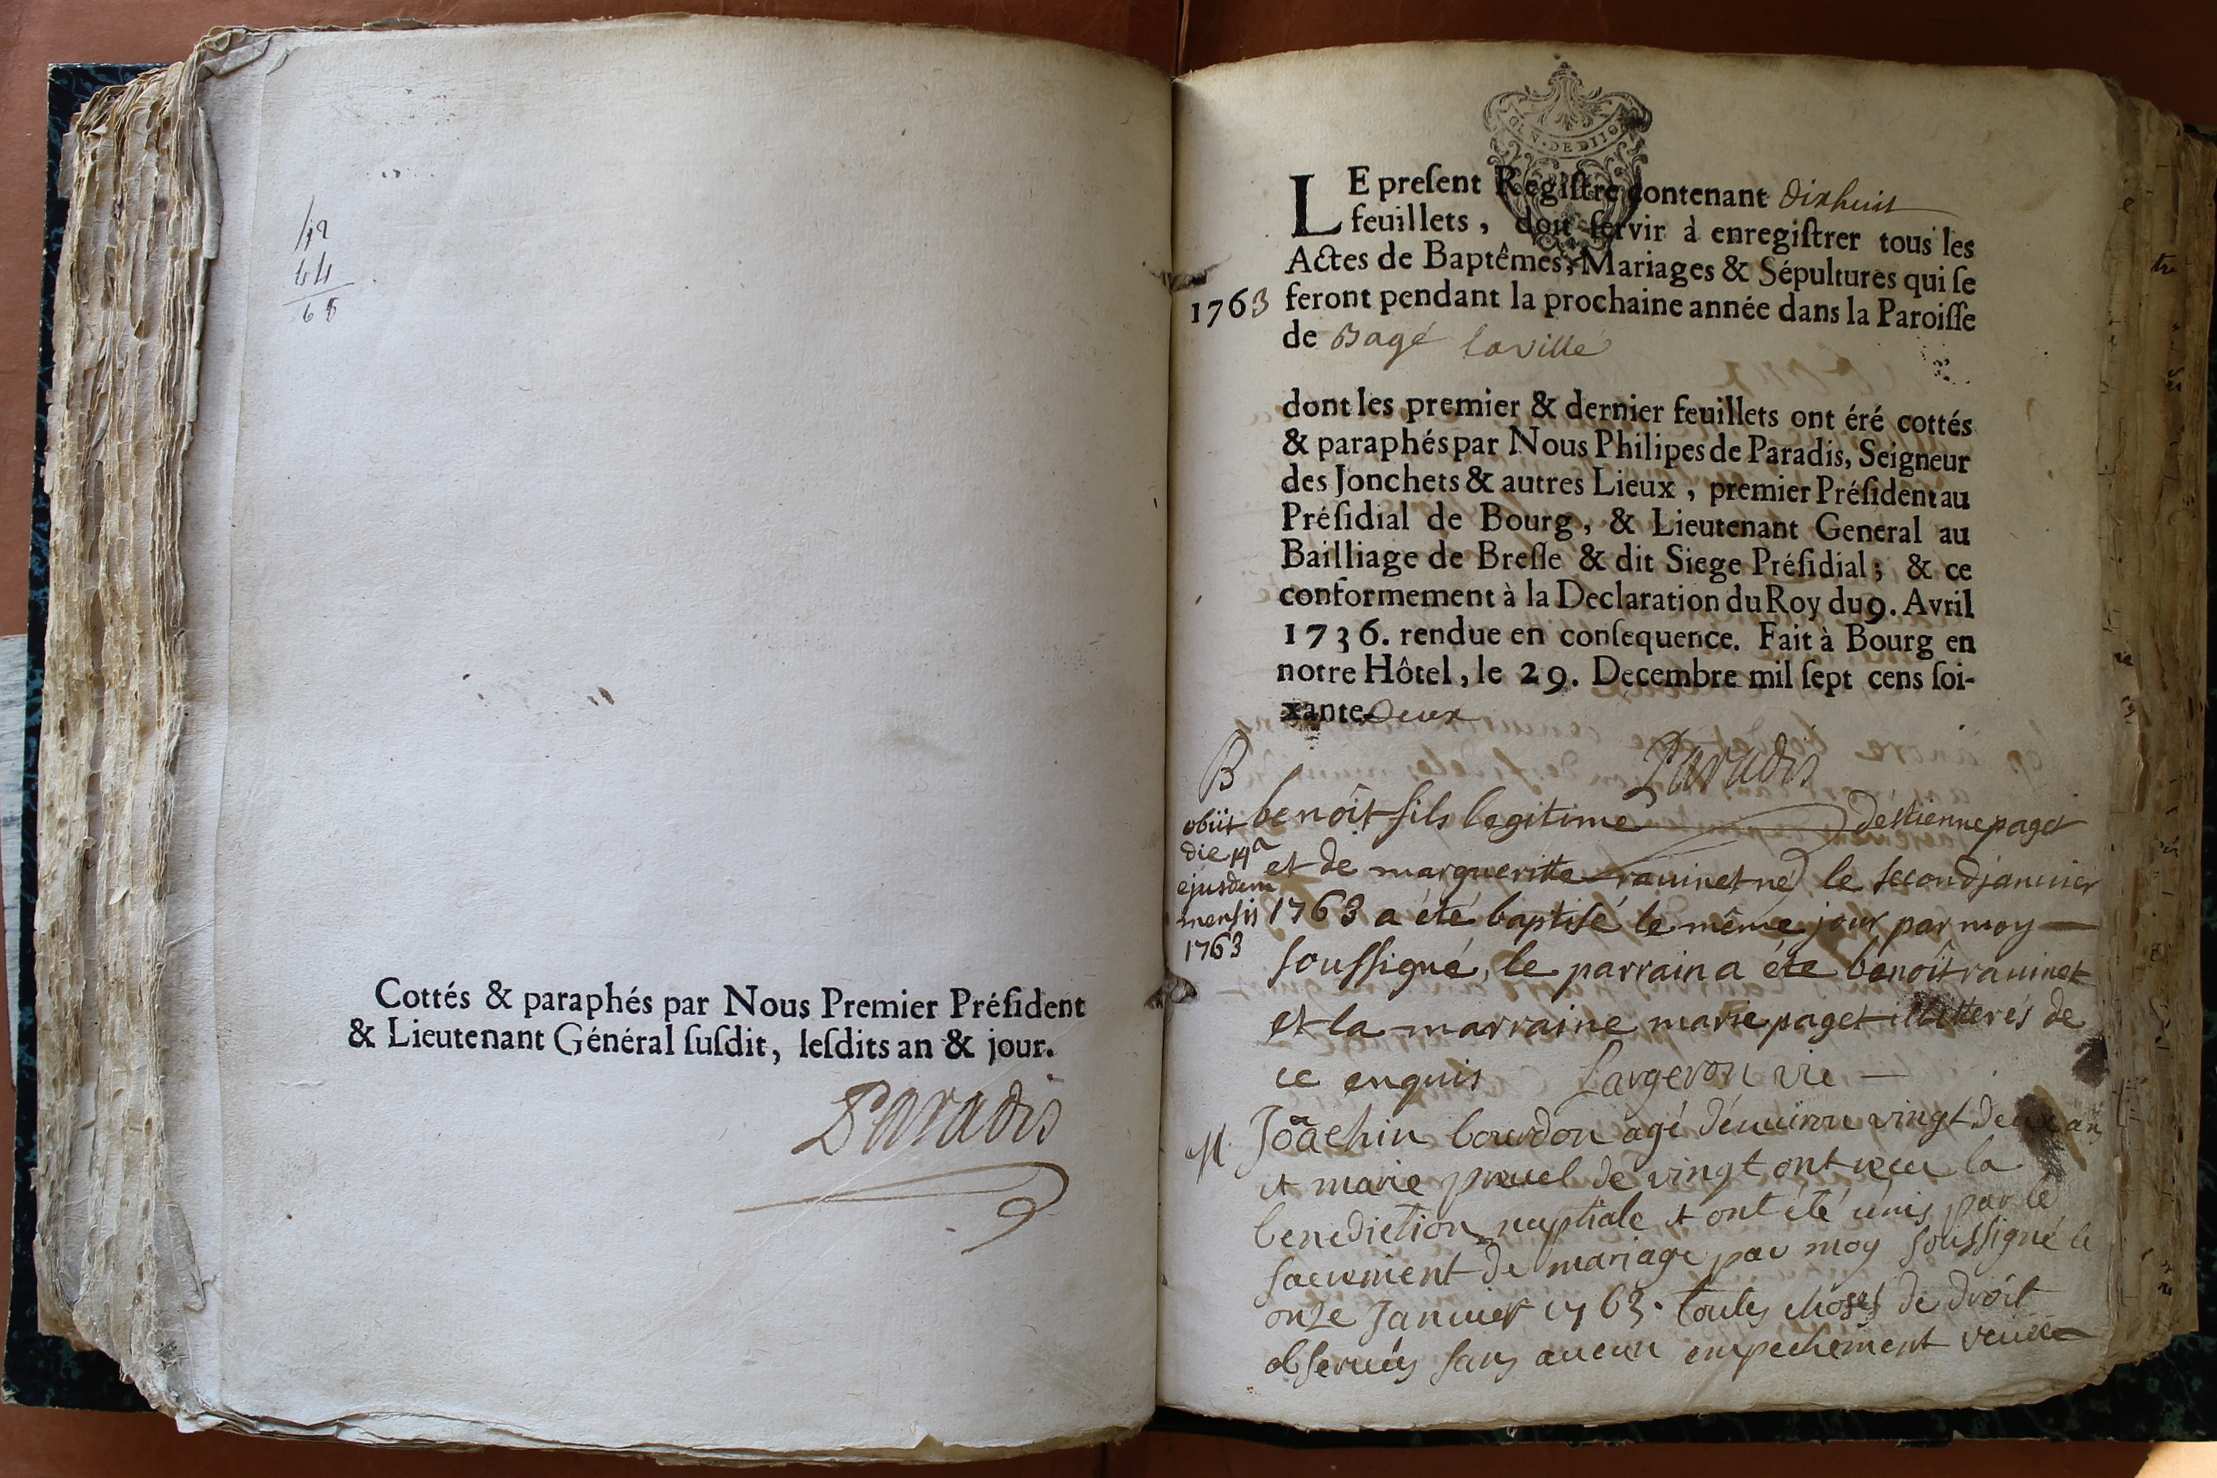 42
44
68
Cottés & paraphés par Nous Premier Préſident
& Lieutenant Général ſuſdit, leſdits an & jour.
Paradis
GEN. DE DIJON
LE preſent Regiſtre contenant dixhuit
feuillets, doit ſervir à enregiſtrer tous les
Actes de Baptêmes, Mariages & Sépultures qui ſe
1763 feront pendant la prochaine année dans la Paroiſſe
de Bagé laville
dont les premier & dernier feuillets ont éré cottés
& paraphés par Nous Philipes de Paradis, Seigneur
des Jonchets & autres Lieux, premier Préſident au
Préſidial de Bourg, & Lieutenant General au
Bailliage de Breſſe & dit Siege Préſidial; & ce
conformement à la Declaration du Roy du 9. Avril
1736. rendue en conſequence. Fait à Bourg en
notre Hôtel, le 29. Decembre mil ſept cens ſoi-
xante Deux
Paradis
B
obiit
die 14a
ejusdem
mensis
1763
benoît fils legitime d'estienne paget
et de marguerite ravinet né le second janvier
1763 a été baptisé le même jour par moy
soussigné, le parrain a été benoît ravinet
et la marraine marie paget illitterés de
ce enquis Largeron vic
M. Joachin bourdon agé d'environ vingt deux ans
et marie de vingt ont recu la
benediction nuptiale et ont été unis par le
sacrement de mariage par moy soussigné le
onze Janvier 1763. toutes choses de droit
observées sans aucun empechement